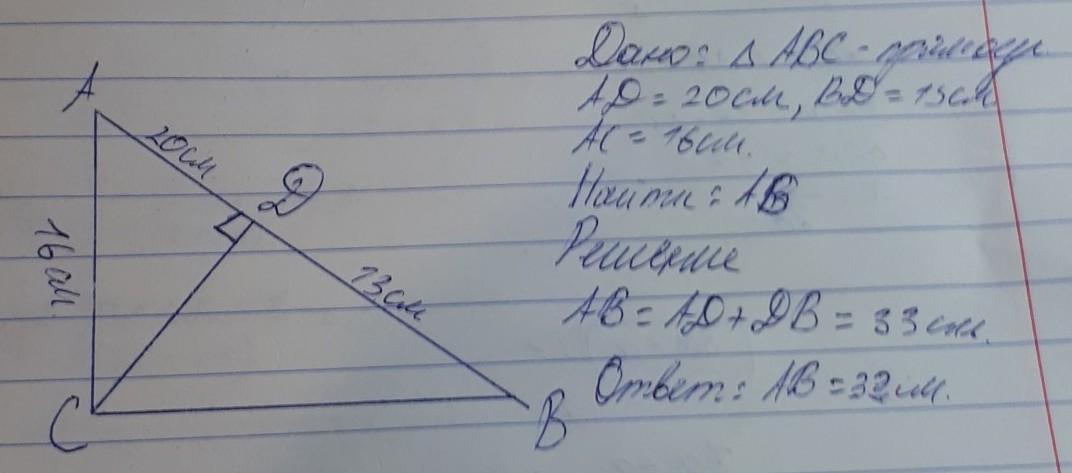 A
20см
D
16см.
13см
C
B
Дано: Δ ABC - прямоуг.
AD = 20см, BD = 13см
AC = 16см.
Найти: AB
Решение
AB = AD + DB = 33см.
Ответ: AB = 33см.